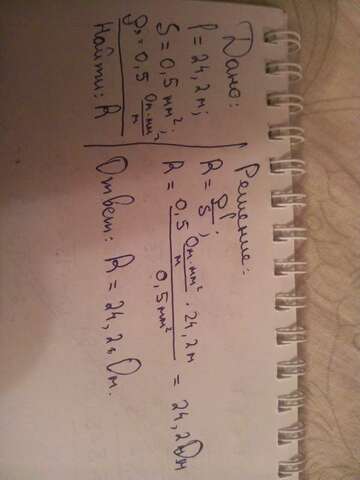 Дано:
l = 24,2 м;
S = 0,5 мм²;
ρ = 0,5 Ом·мм²/м
Найти: R
Решение:
R = ρl/S;
R = 0,5 Ом·мм²/м · 24,2 м / 0,5 мм² = 24,2 Ом
Ответ: R = 24,2 Ом.